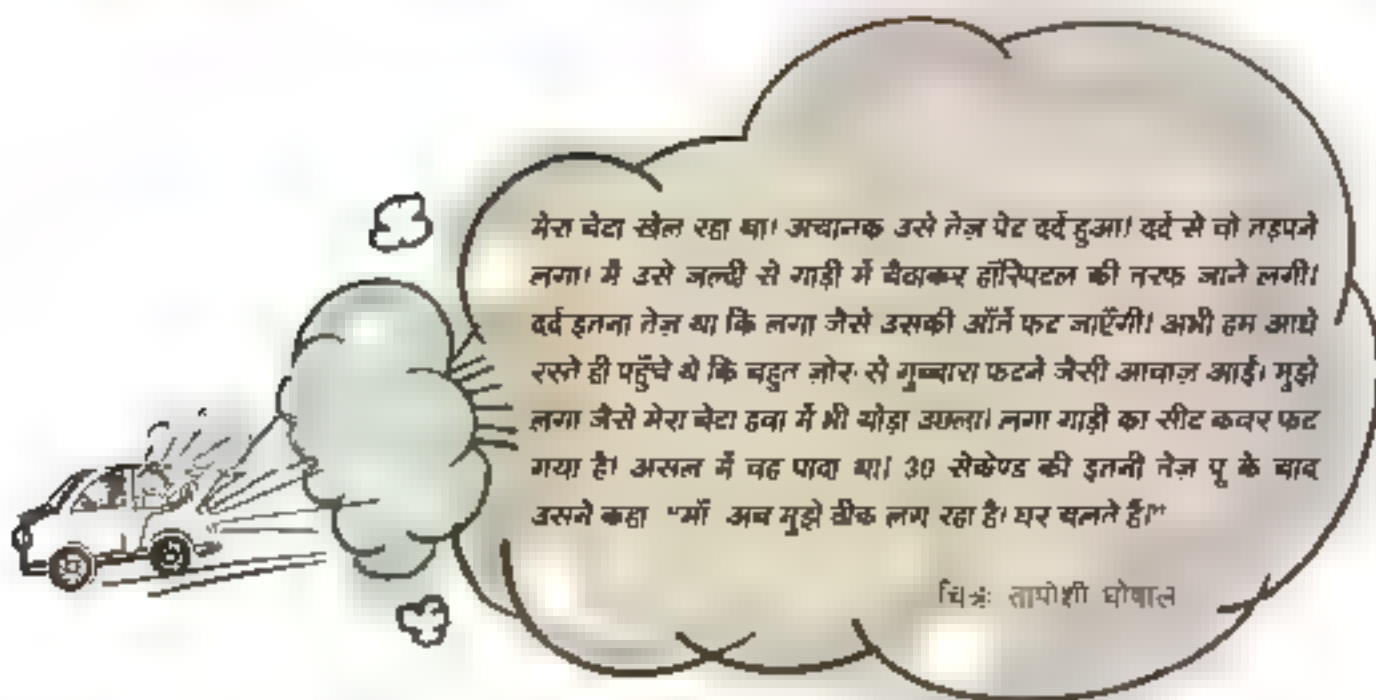 मेरा बेटा खेल रहा था। अचानक उसे तेज़ पेट दर्द हुआ। दर्द से वो तड़पने
लगा। मैं उसे जल्दी से गाड़ी में बैठाकर हॉस्पिटल की तरफ जाने लगी।
दर्द इतना तेज़ था कि लगा जैसे उसकी आँतें फट जाएँगी। अभी हम आधे
रस्ते ही पहुँचे थे कि बहुत ज़ोर से गुब्बारा फटने जैसी आवाज़ आई। मुझे
लगा जैसे मेरा बेटा हवा में भी थोड़ा उछला। लगा गाड़ी का सीट कवर फट
गया है। असल में वह पादा था। 30 सेकेण्ड की इतनी तेज़ पू के बाद
उसने कहा "माँ अब मुझे ठीक लग रहा है। घर चलते हैं।"
चित्र: तापोशी घोषाल